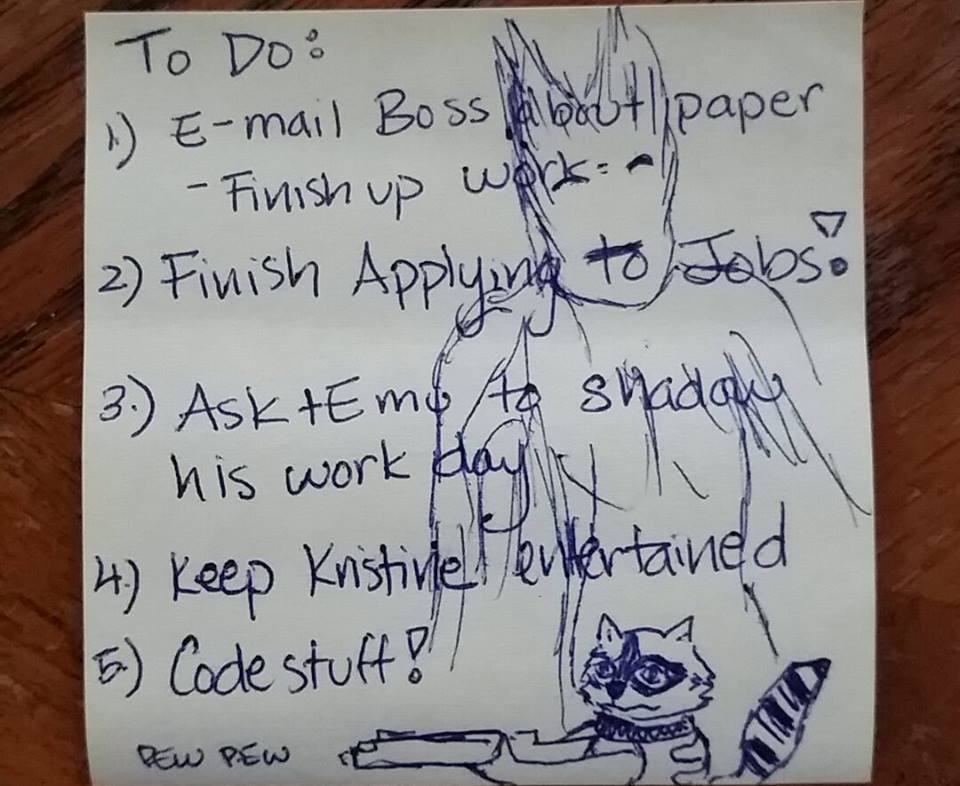 To Do:
1.) E-mail Boss about paper
- Finish up work
2.) Finish Applying to Jobs!
3.) Ask + Emo to shadow
his work day
4.) Keep Kristine entertained
5.) Code stuff!
PEW PEW